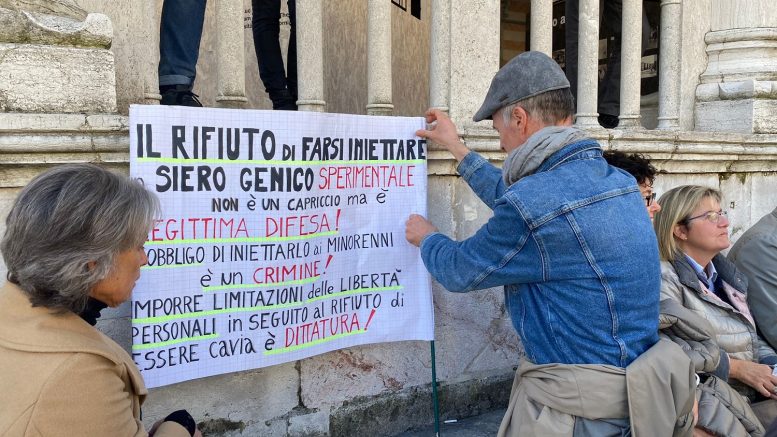 IL RIFIUTO DI FARSI INIETTARE
SIERO GENICO SPERIMENTALE
NON È UN CAPRICCIO MA È
LEGITTIMA DIFESA!
OBBLIGO DI INIETTARLO AI MINORENNI
È UN CRIMINE!
IMPORRE LIMITAZIONI DELLE LIBERTÀ
PERSONALI IN SEGUITO AL RIFIUTO DI
ESSERE CAVIA È DITTATURA!